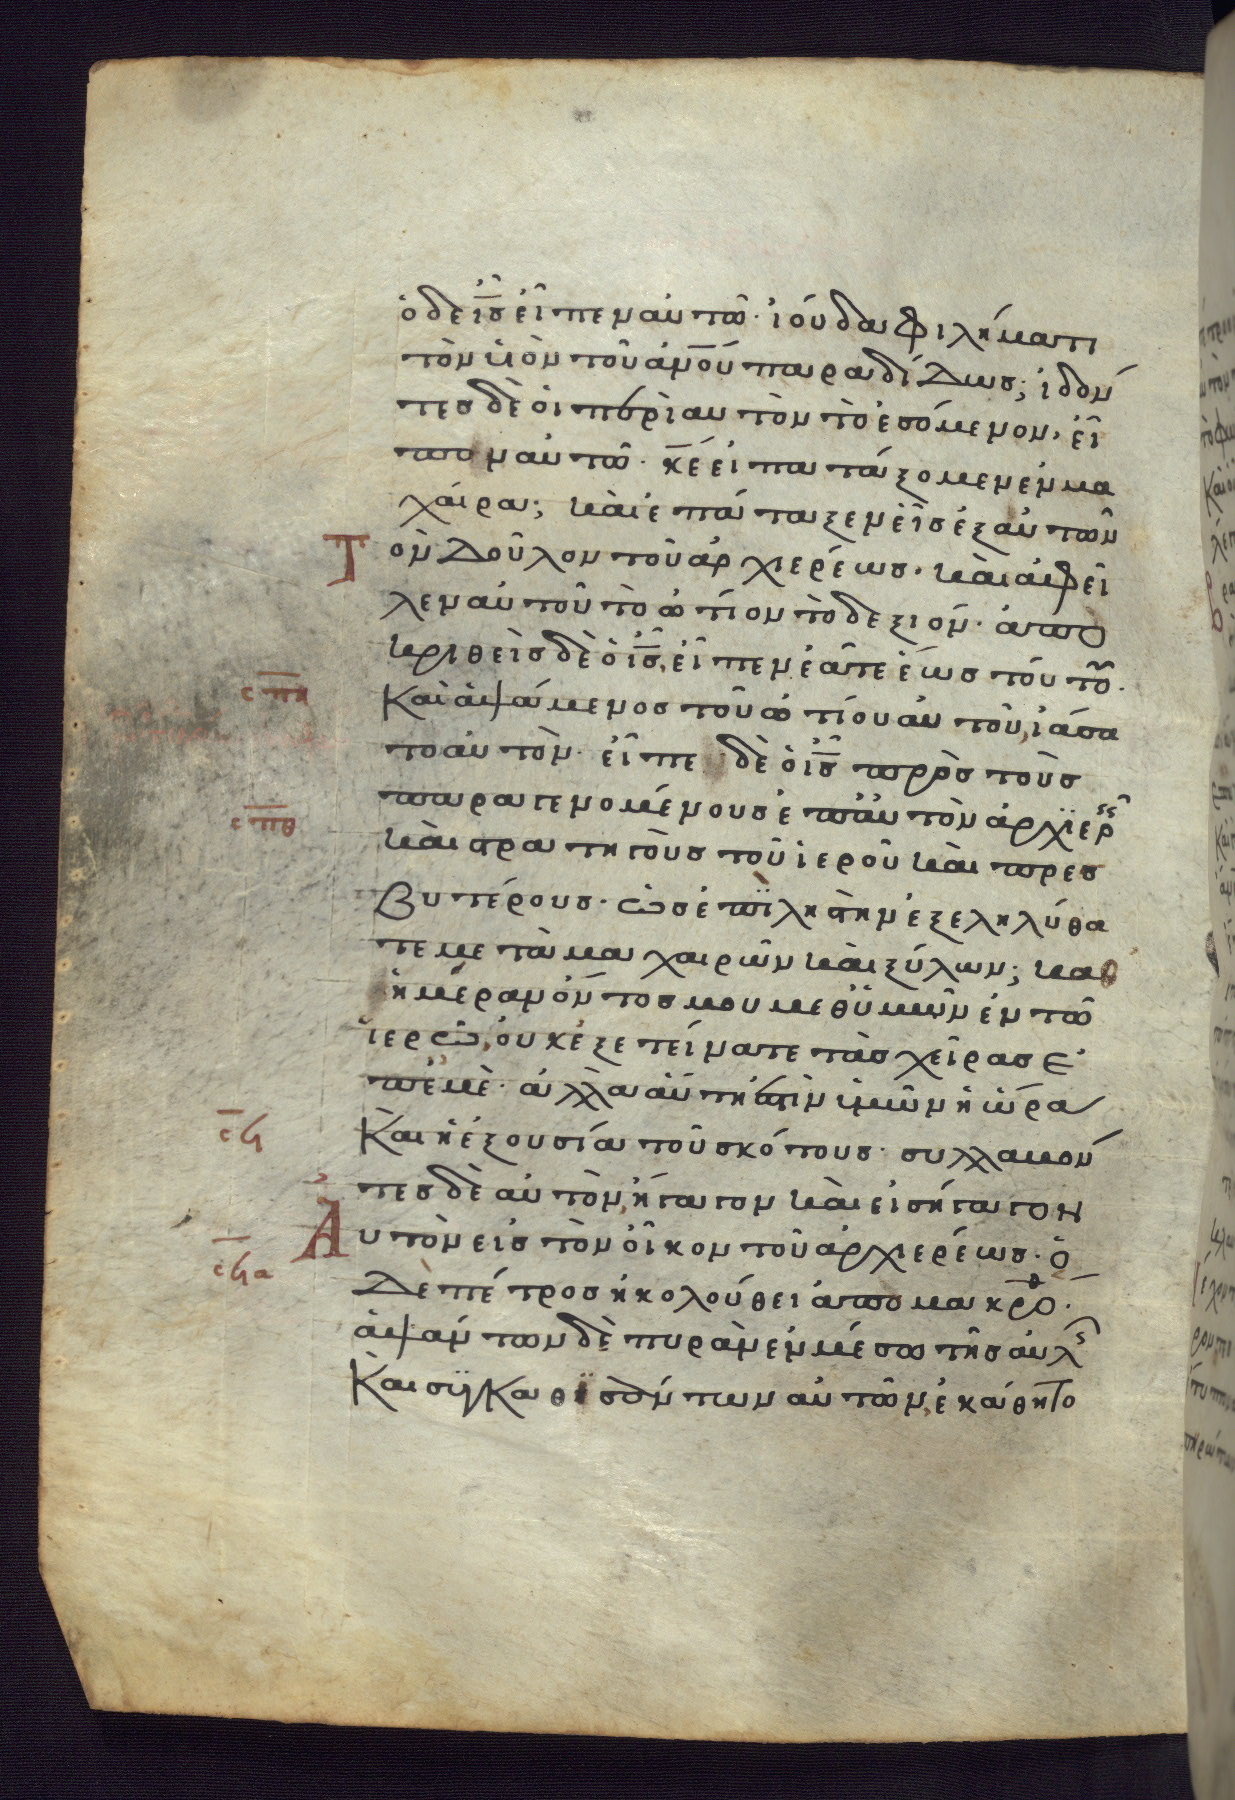 ὁ δε ις̅ εἶπεν αὐτῶ· ἰούδα φιλήματι
τὸν υἱὸν τοῦ ἀν̅ο̅υ̅ παραδίδως; ἰδόν
τες δὲ οἱ περὶ αυτὸν τὸ ἐσόμενον, εἶ
πον αὐτῶ· κ̅ε̅ εἰ πατάξομεν ἐν μα
χαίρα; καὶ ἐπάταξεν εἷς ἐξ αὐτῶν
Τὸν δοῦλον τοῦ ἀρχιερέως· καὶ ἀφεῖ
λεν αὐτοῦ τὸ ὠτίον τὸ δεξιόν· ἀπο
σπη κριθεὶς δὲ ὁ ι̅ς̅, εἶπεν ἐᾶτε ἕως τούτου·
Καὶ ἁψάμενος τοῦ ὠτίου αὐτοῦ, ἰάσα
το αὐτὸν· εἶπε δὲ ὁ ι̅ς̅ πρὸς τοὺς
σπθ παραγενομένους ἐπ αὐτὸν ἀρχιερεῖς
καὶ στρατηγοὺς τοῦ ἱεροῦ καὶ πρεσ
βυτέρους· ὡς ἐπϊ ληστὴν ἐξεληλύθα
τε μετὰ μαχαιρῶν καὶ ξύλων; καθ
ἡμέραν ὄντος μου μεθ ϋμῶν ἐν τῶ
ἱερῶ, οὐκ ἐξετείνατε τὰς χεῖρας ἐ
π ἐμὲ· ἀλλ αὕτη ἐστὶν ὑμῶν ἡ ὥρα
σϟ Και ἡ ἐξουσία τοῦ σκότους· συλλαβόν
τες δὲ αὐτὸν, ἤγαγον καὶ εἰσήγαγον
Αὐτὸν εἰς τὸν οἶκον τοῦ ἀρχιερέως· ὁ
σϟα Δε πέτρος ἠκολούθει ἀπο μακρόθεν·
ἁψάντων δὲ πυρὰν ἐν μέσω τῆς αὐλῆς
Και συγκαθϊσάντων αὐτῶν, ἐκάθητο